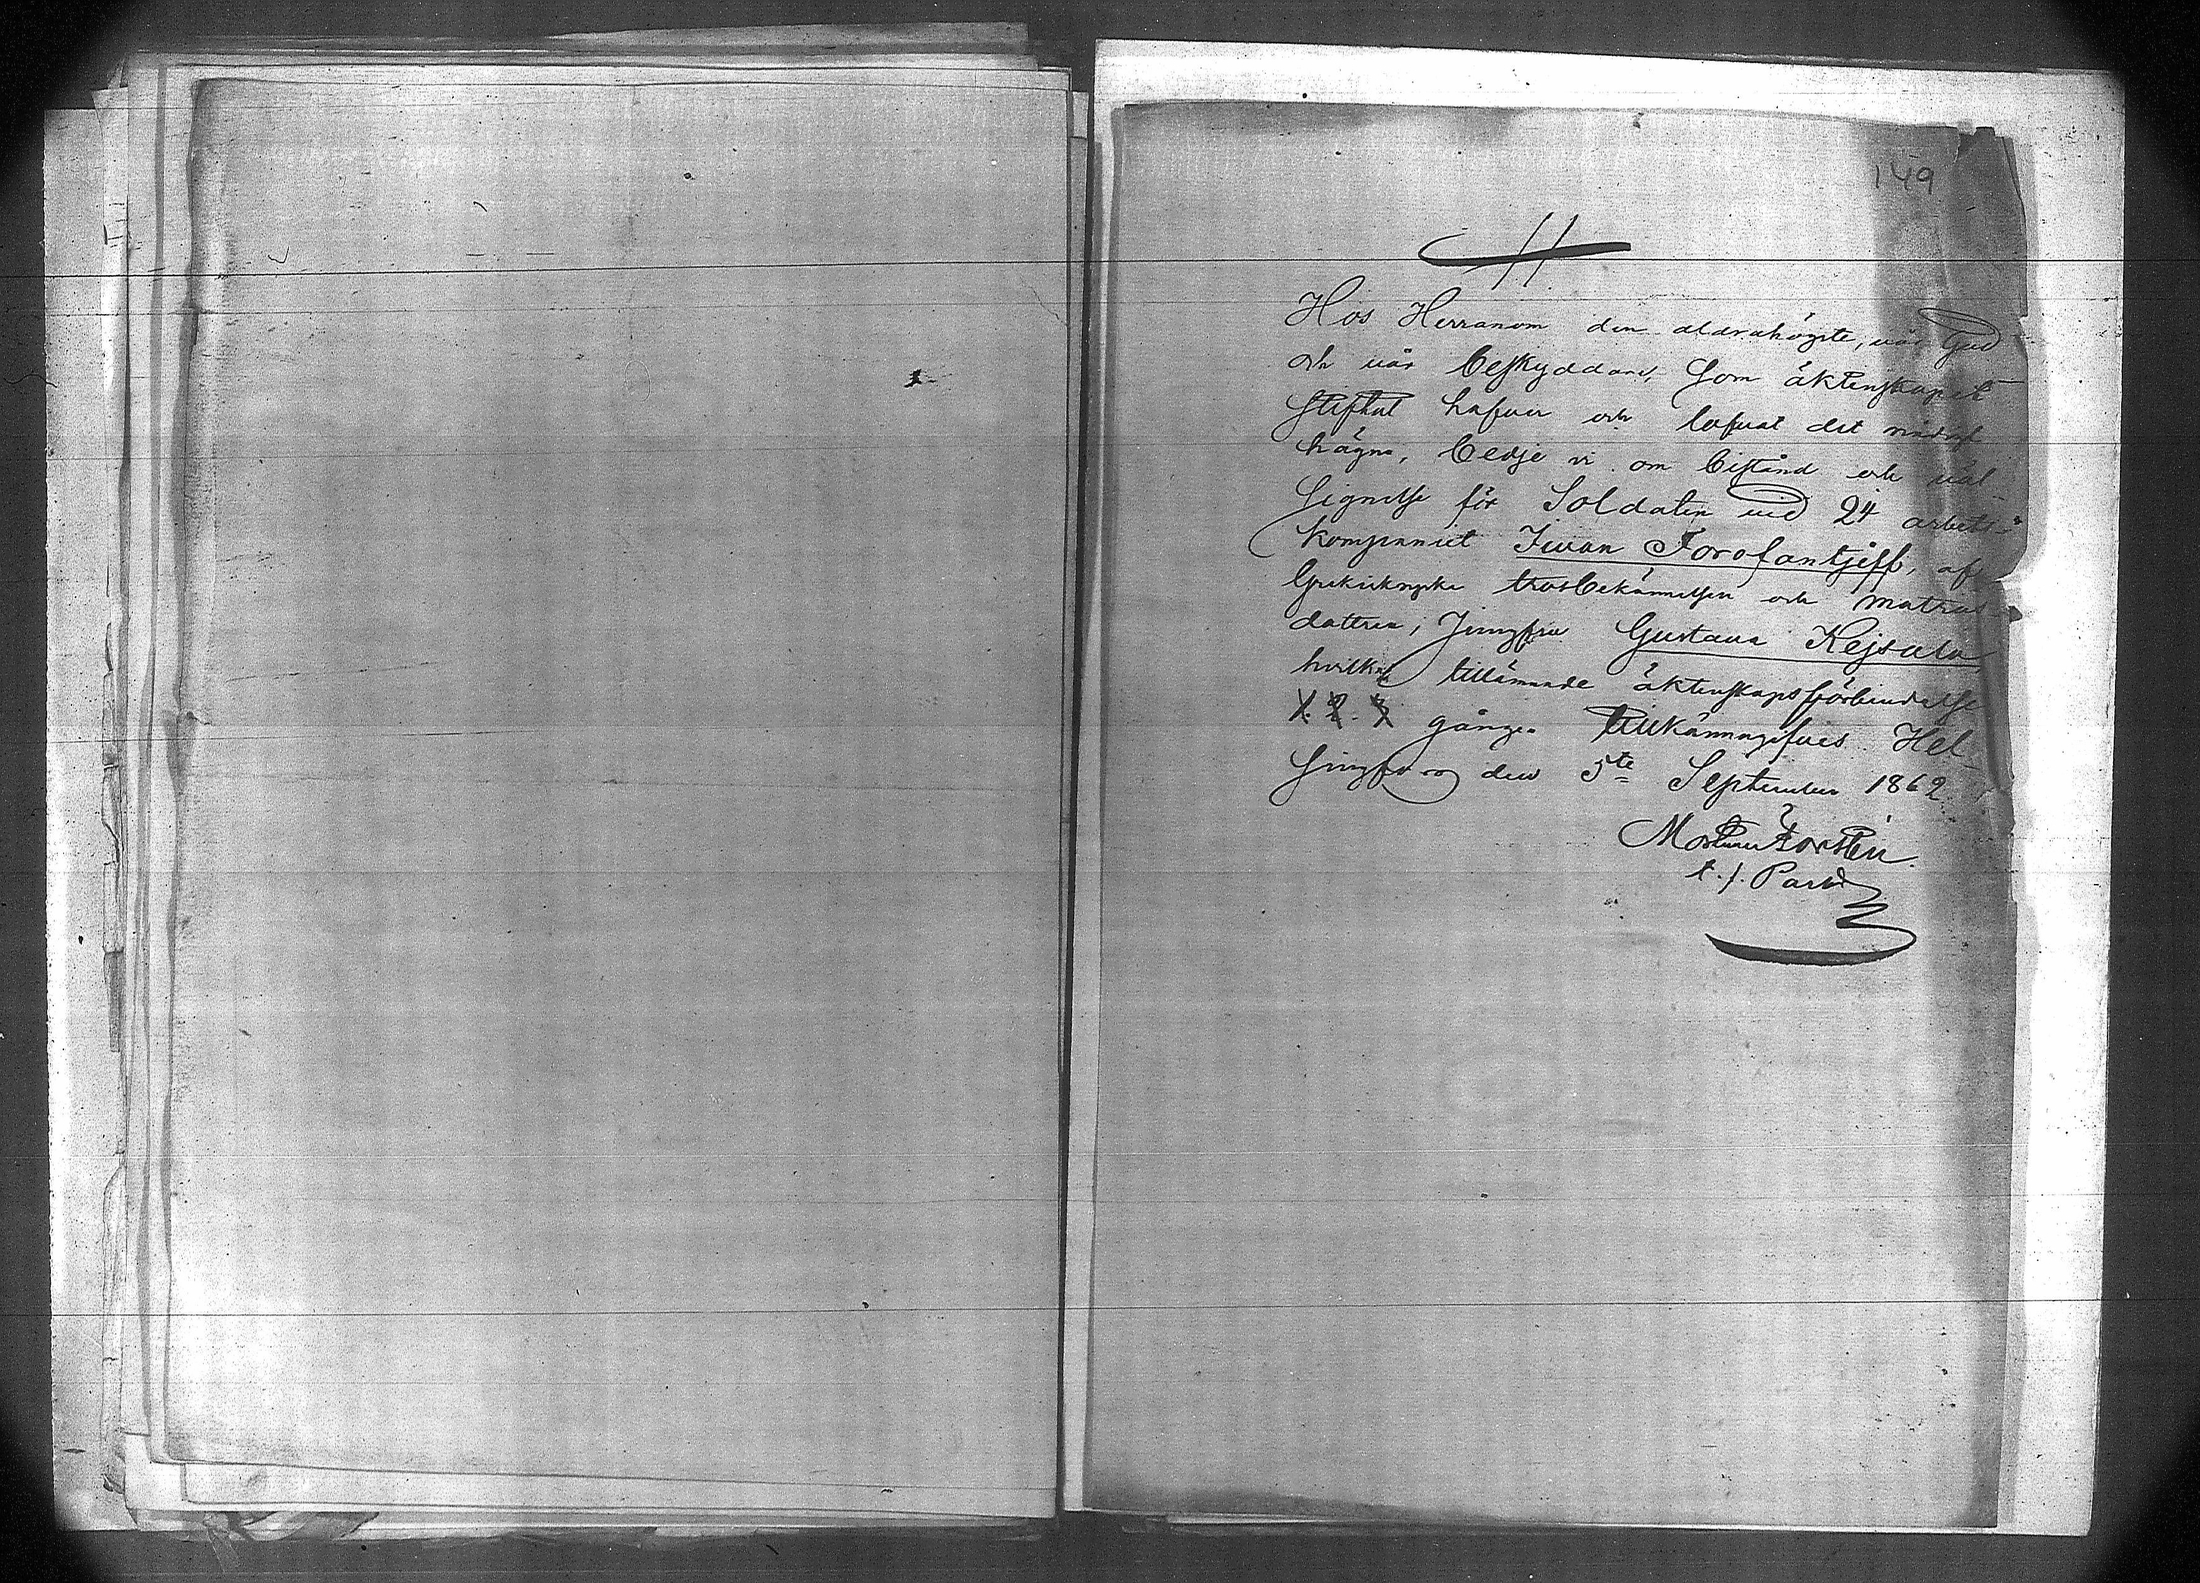 149
Hos Herranom den aldrahögste, vår Gud
och vår beskyddare, som äktenskapet
stiftat hafver och lofvat det
hägna, bedje vi om bistånd och väl-
signelse för Soldaten vid 24 arbets-
kompaniet Ivan Forofontjeff, af
trosbekännelsen och matros
dottren, Jungfru Gustava Kejsala
hvilkas tillämnade äktenskapsförbindelse
1. 2. 3 gången tillkännagifves. Hel-
singfors den 5te September 1862.
Forstén.
t. f. Pastor